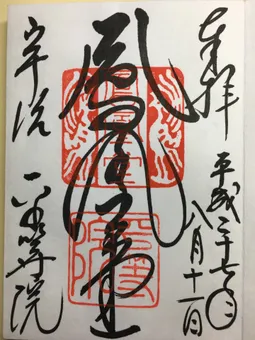 奉拝
平成二十七年
八月十一日
鳳凰堂
宇治 平等院